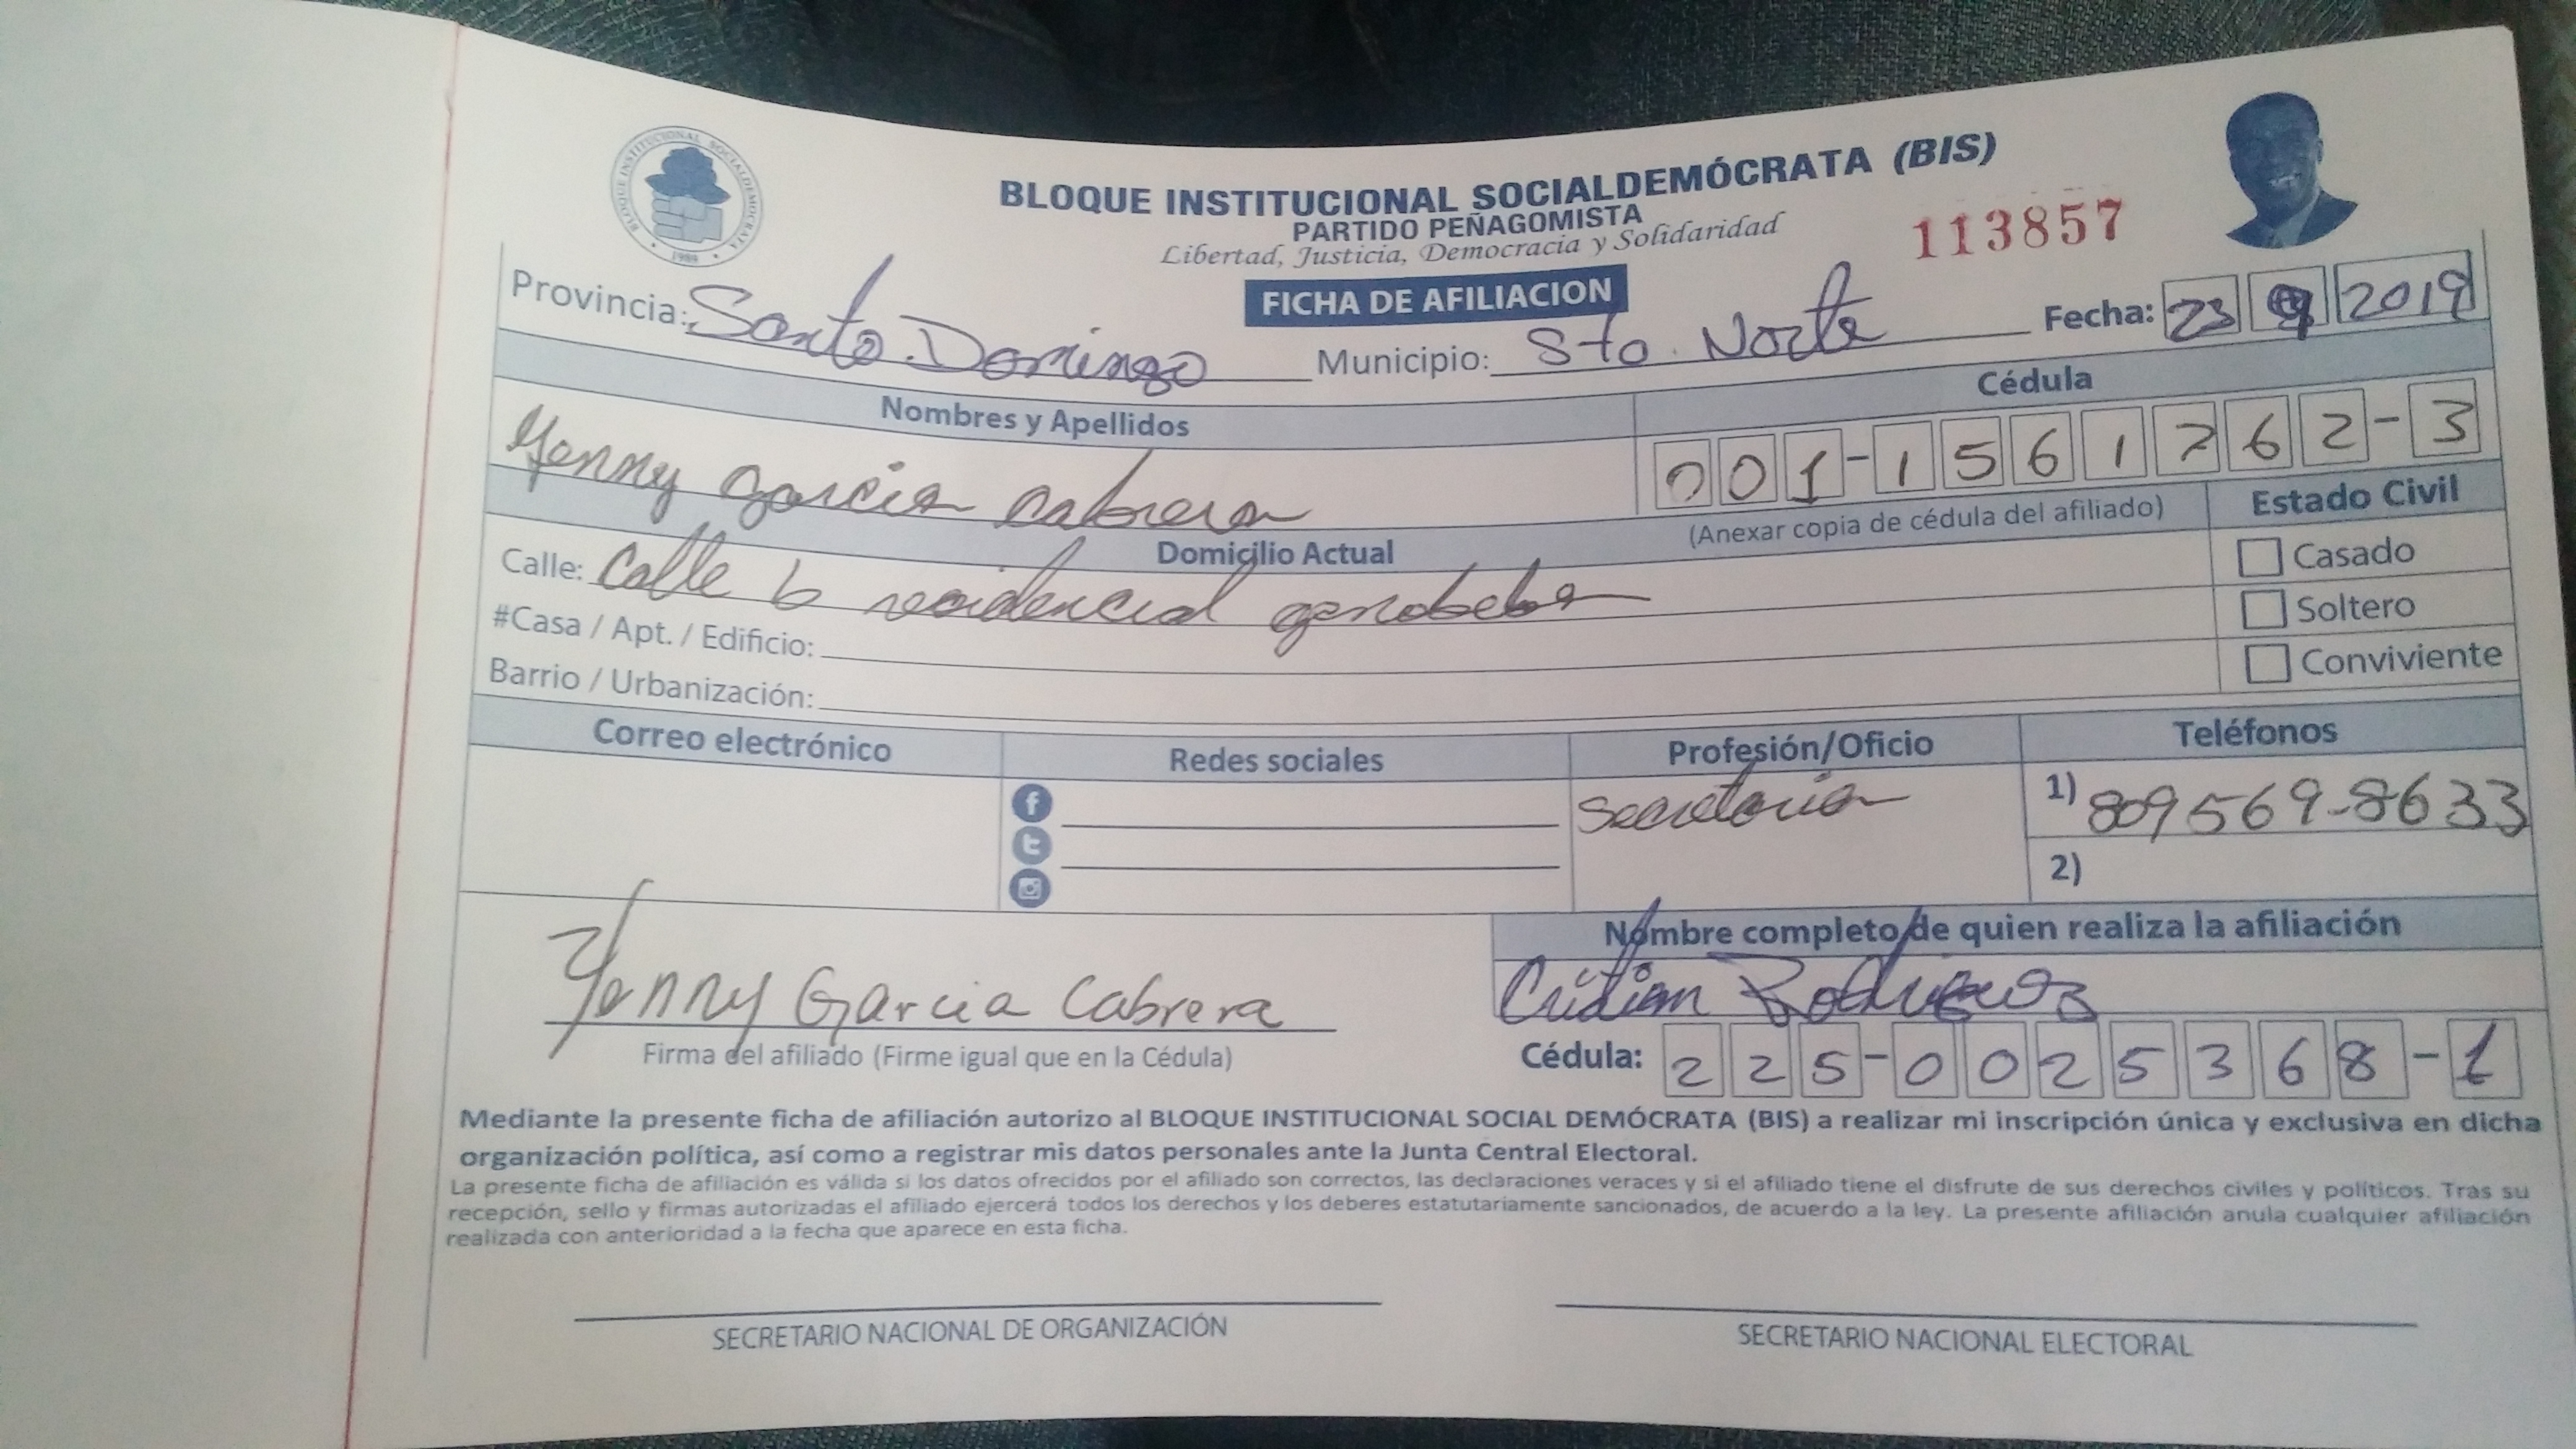 BLOQUE INSTITUCIONAL SOCIALDEMOCRATA
1989
BLOQUE INSTITUCIONAL SOCIALDEMÓCRATA (BIS)
PARTIDO PEÑAGOMISTA
Libertad, Justicia, Democracia y Solidaridad
113857
FICHA DE AFILIACION
Provincia: Santo Domingo Municipio: Sto. Norte Fecha: 23 9 2019
Nombres y Apellidos Cédula
Yenny Garcia Cabrera 001-1561762-3
(Anexar copia de cédula del afiliado)
Domicilio Actual Estado Civil
Calle: Calle 6 residencial
#Casa / Apt. / Edificio:
Barrio / Urbanización:
Casado
Soltero
Conviviente
Correo electrónico Redes sociales Profesión/Oficio Teléfonos
Secretaria 1) 809569-8633
2)
Nombre completo de quien realiza la afiliación
Yenny Garcia Cabrera Rodriguez
Firma del afiliado (Firme igual que en la Cédula) Cédula: 225-0025368-1
Mediante la presente ficha de afiliación autorizo al BLOQUE INSTITUCIONAL SOCIAL DEMÓCRATA (BIS) a realizar mi inscripción única y exclusiva en dicha
organización política, así como a registrar mis datos personales ante la Junta Central Electoral.
La presente ficha de afiliación es válida si los datos ofrecidos por el afiliado son correctos, las declaraciones veraces y si el afiliado tiene el disfrute de sus derechos civiles y políticos. Tras su
recepción, sello y firmas autorizadas el afiliado ejercerá todos los derechos y los deberes estatutariamente sancionados, de acuerdo a la ley. La presente afiliación anula cualquier afiliación
realizada con anterioridad a la fecha que aparece en esta ficha.
SECRETARIO NACIONAL DE ORGANIZACIÓN SECRETARIO NACIONAL ELECTORAL